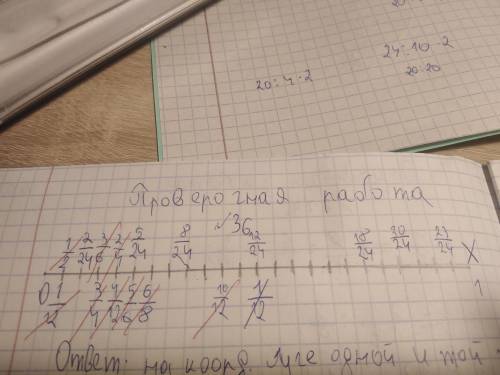 24:10·2
20:20
20:4·2
Проверочная работа
√36
1/2 2/24 5/24 8/24 12/24 18/24 20/24 23/24 X
0 1/12 3/4 4/12 5/6 6/8 10/12 1/12 1
Ответ: на коорд. луге одной и той